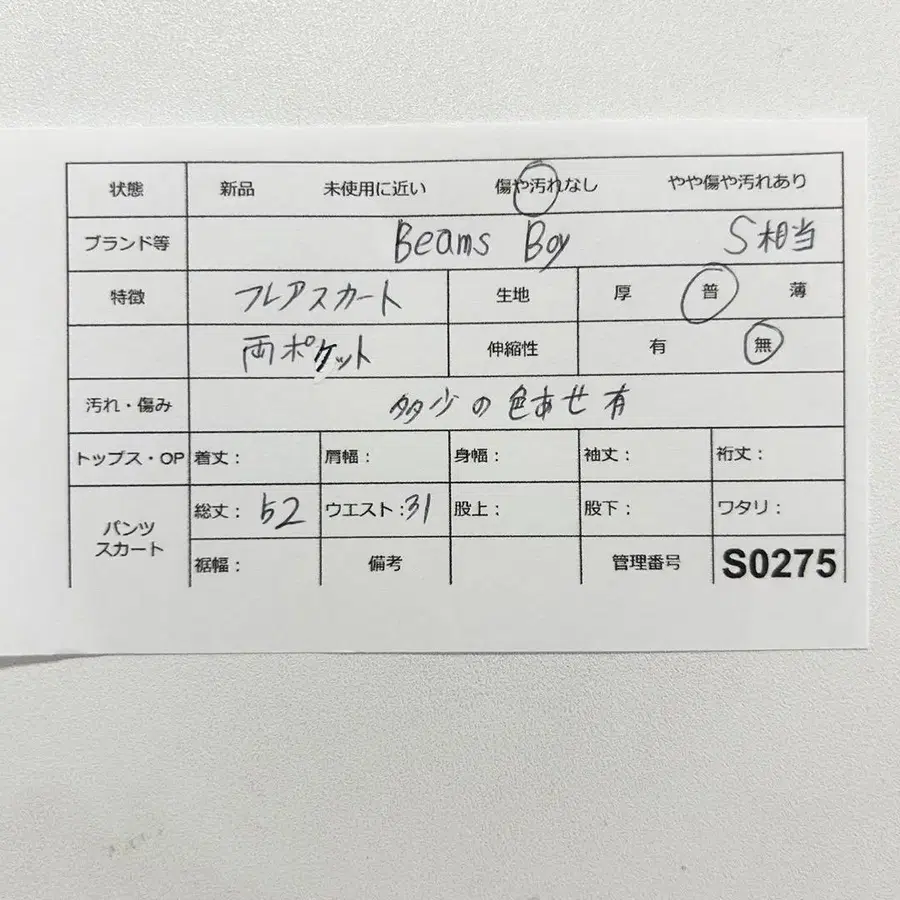 状態 新品 未使用に近い 傷や汚れなし やや傷や汚れあり
ブランド等 Beams Boy S相当
特徴 フレアスカート 生地 厚 普 薄
両ポケット 伸縮性 有 無
汚れ・傷み 多少の色あせ有
トップス・OP 着丈: 肩幅: 身幅: 袖丈: 裄丈:
パンツ スカート 総丈: 52 ウエスト:31 股上: 股下: ワタリ:
裾幅: 備考 管理番号 S0275